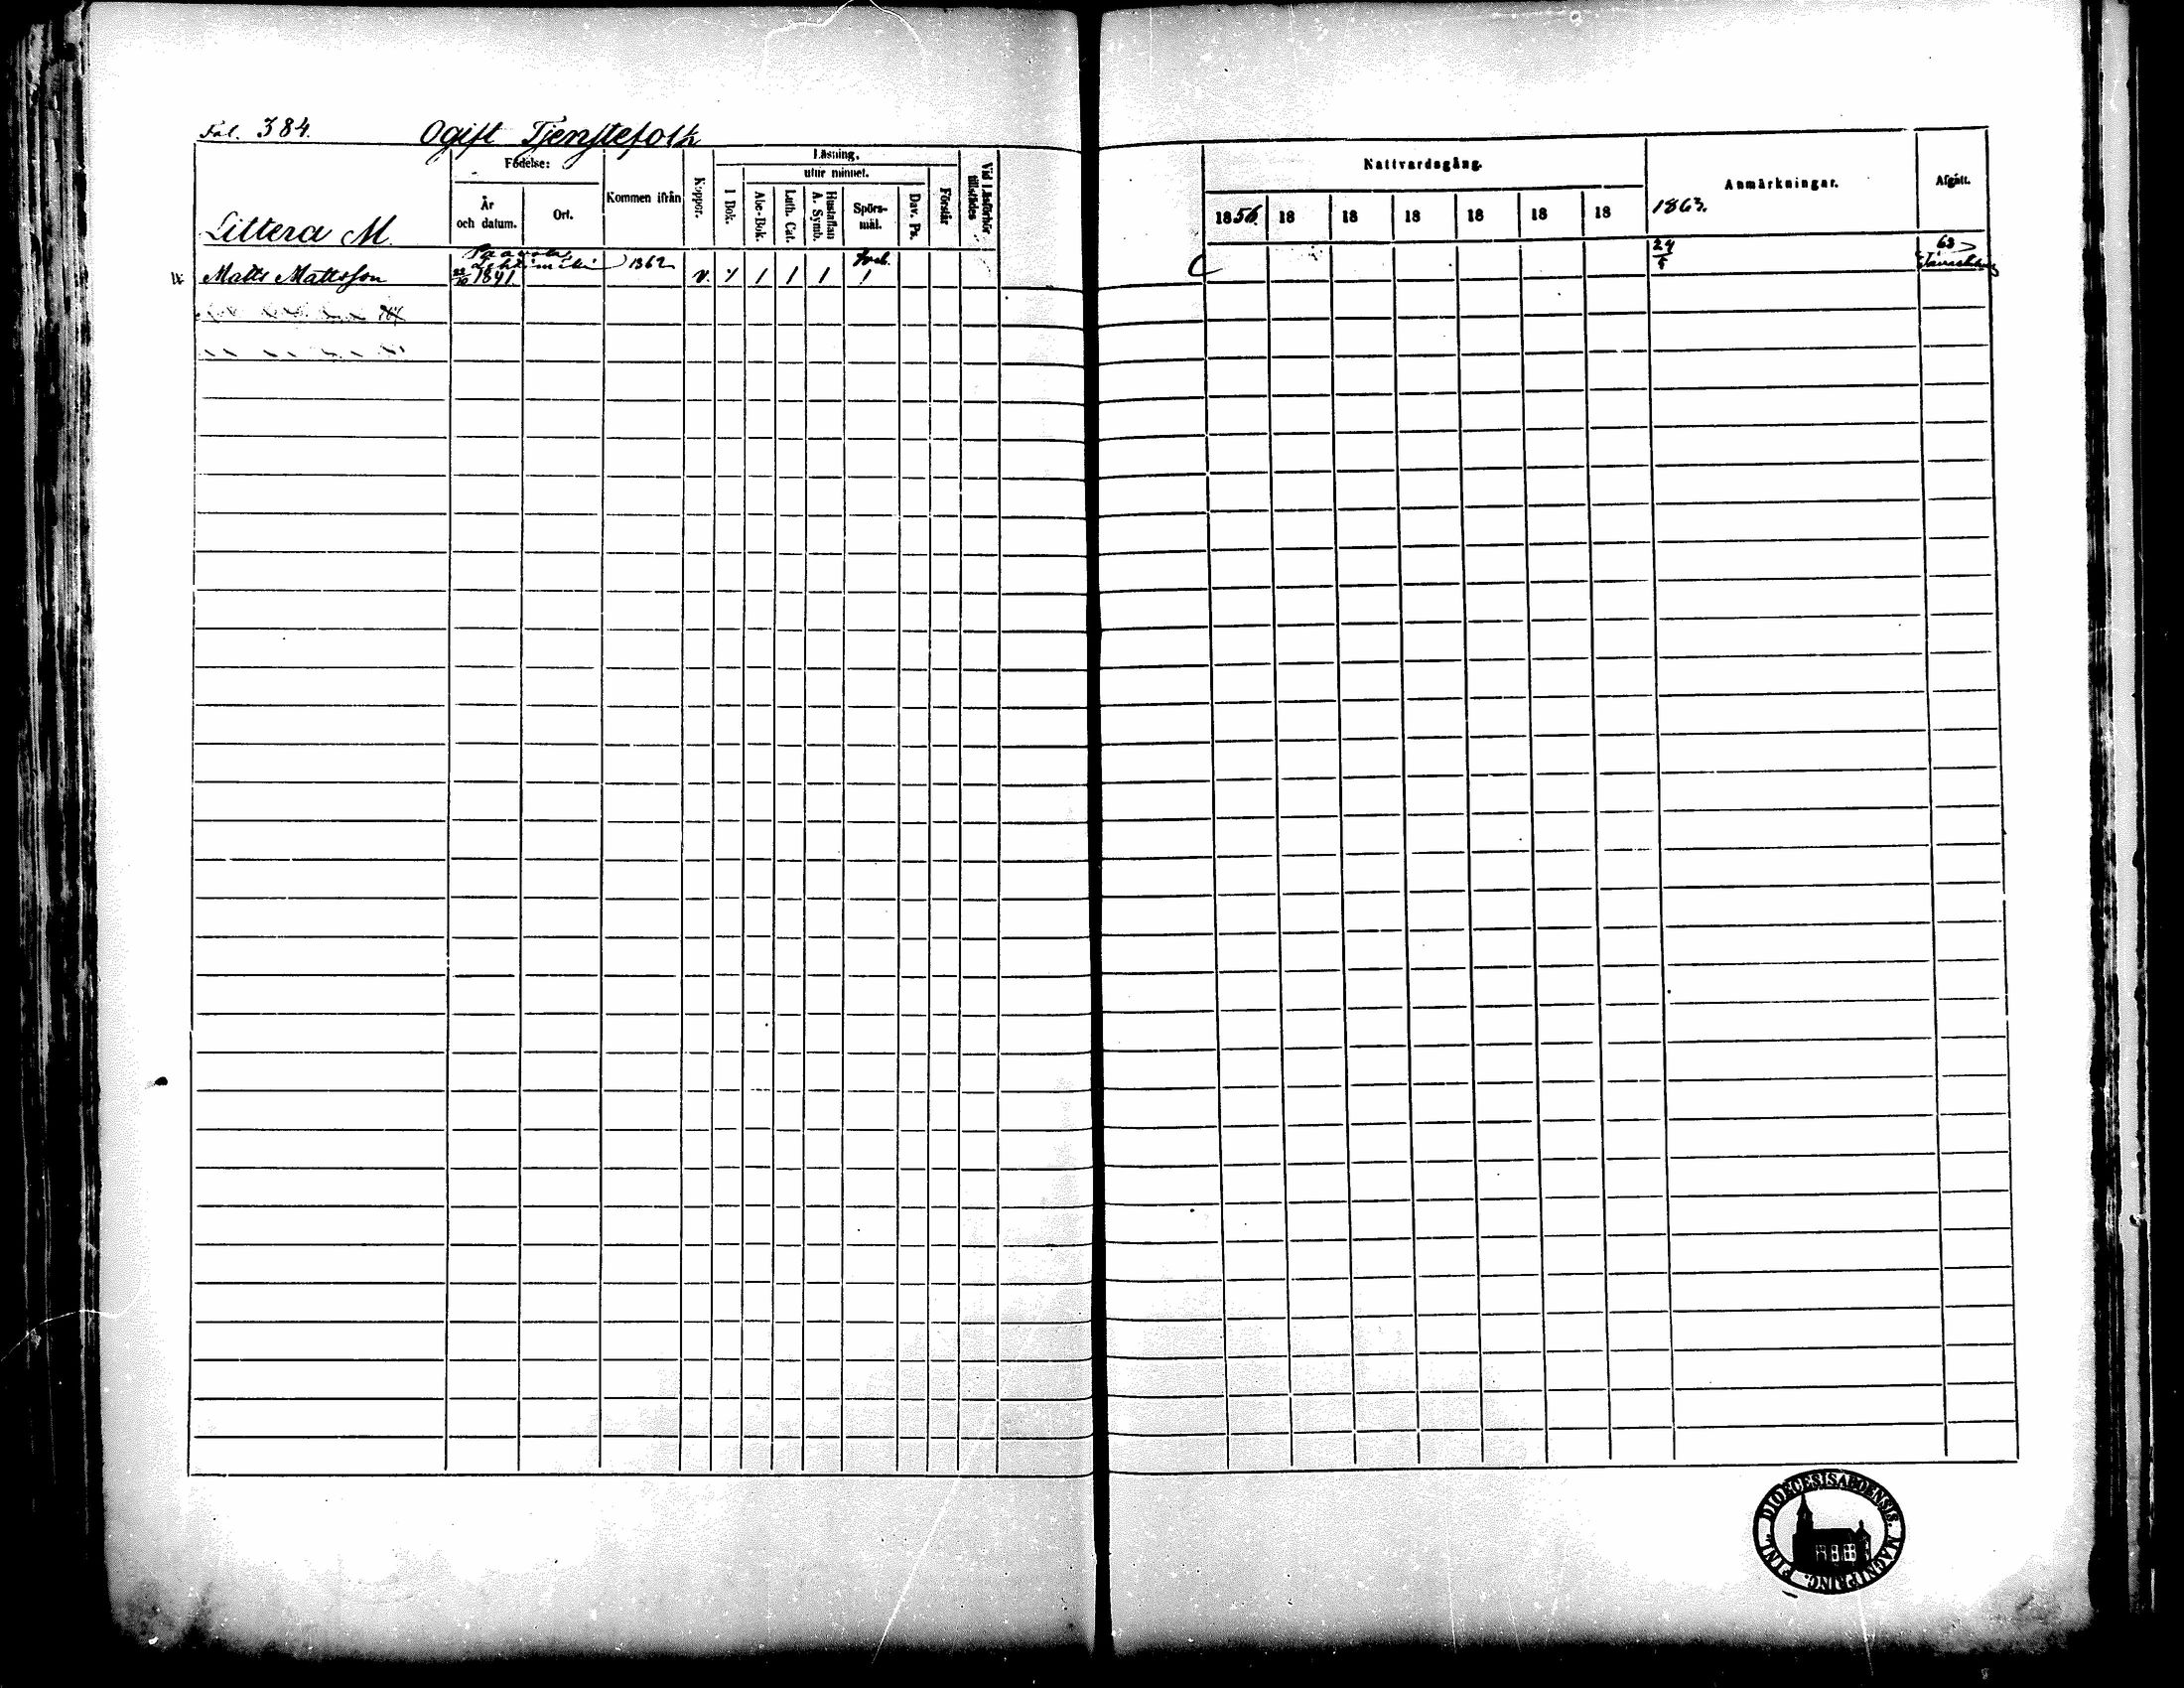 Fol. 384. Ogift Tjenstefolk
Littera M.
Födelse:
År och datum.
Ort.
Kommen ifrån
Koppor.
Läsning.
utur minnet.
I Bok.
Abc-Bok.
Luth. Cat.
Hustaflan A. Symb.
Spörsmål.
Dav. Ps.
Förstår
Vid Läsförhör tillstädes
Nattvardsgång.
1856 18 18 18 18 18 18
Anmärkningar.
1863.
Afgått.
Matts Mattsson 22/10 1841 1862 v. 1 1 1 1
24/5
63
FINL. DIOECESIS ABOENSIS. MAGNI PRINC.